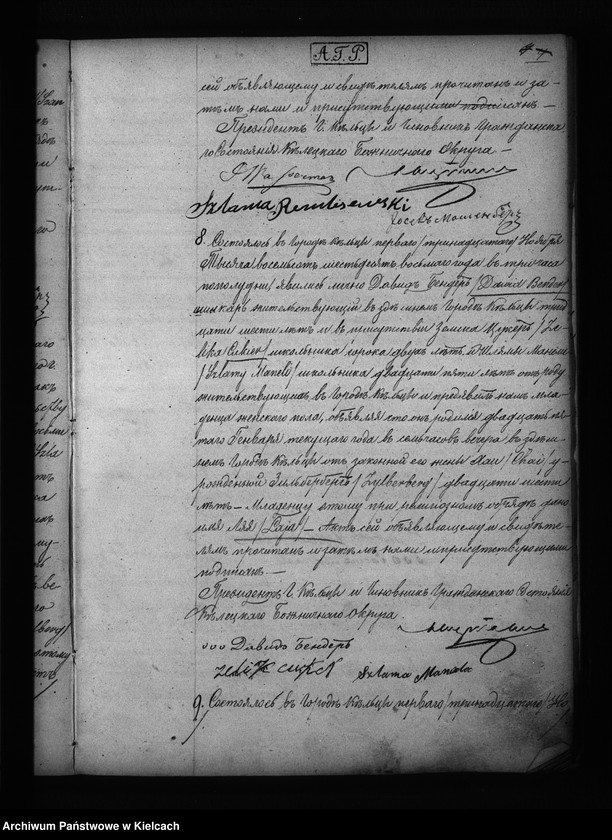 А.Г.Р.
сей объявляющему и свидѣтелямъ прочитанъ и за-
тѣмъ нами и присутствующими подписанъ. —
Президентъ Г. Кѣльцы и Чиновникъ Гражданска
го Состоянія Кѣлецкаго Божничнаго Округа —
Szlama Rembiszewski
8. Состоялось въ Городѣ Кѣльцы перваго /тринадцатаго/ Ноября
Тысяча восемьсотъ шестьдесятъ восьмаго года въ три часа
по полудни, явился лично Давидъ Бендеръ /Dawid Bender/
шинкарь жительствующій въ здѣшнемъ Городѣ Кѣльцы трид
цати шести лѣтъ и въ присутствіи
Cukier/ школьника сорока двухъ лѣтъ, и Шлямы
/Szlamy / школьника двадцати пяти лѣтъ отъ роду
жительствующихъ въ Городѣ Кѣльцы и предъявилъ намъ мла-
денца женскаго пола, объявляя что онъ родился двадцать пя
таго Генваря текущаго года въ семь часовъ вечера въ здѣш-
немъ Городѣ Кѣльцы отъ законной его жены Хаи /Chai/ у-
рожденной Зильбербергъ /Zylberberg/ двадцати шести
лѣтъ — Младенцу этому при религіозномъ обрядѣ дано
имя — Актъ сей объявляющему и свидѣте-
лямъ прочитанъ и затѣмъ нами и присутствующими
подписанъ —
Президентъ Г. Кѣльцы и Чиновникъ Гражданскаго Состоянія
Кѣлецкаго Божничнаго Округа.
Давидъ Бендеръ
Szlama
9. Состоялось въ Городѣ Кѣльцы перваго /тринадцатаго/ Но
Archiwum Państwowe w Kielcach